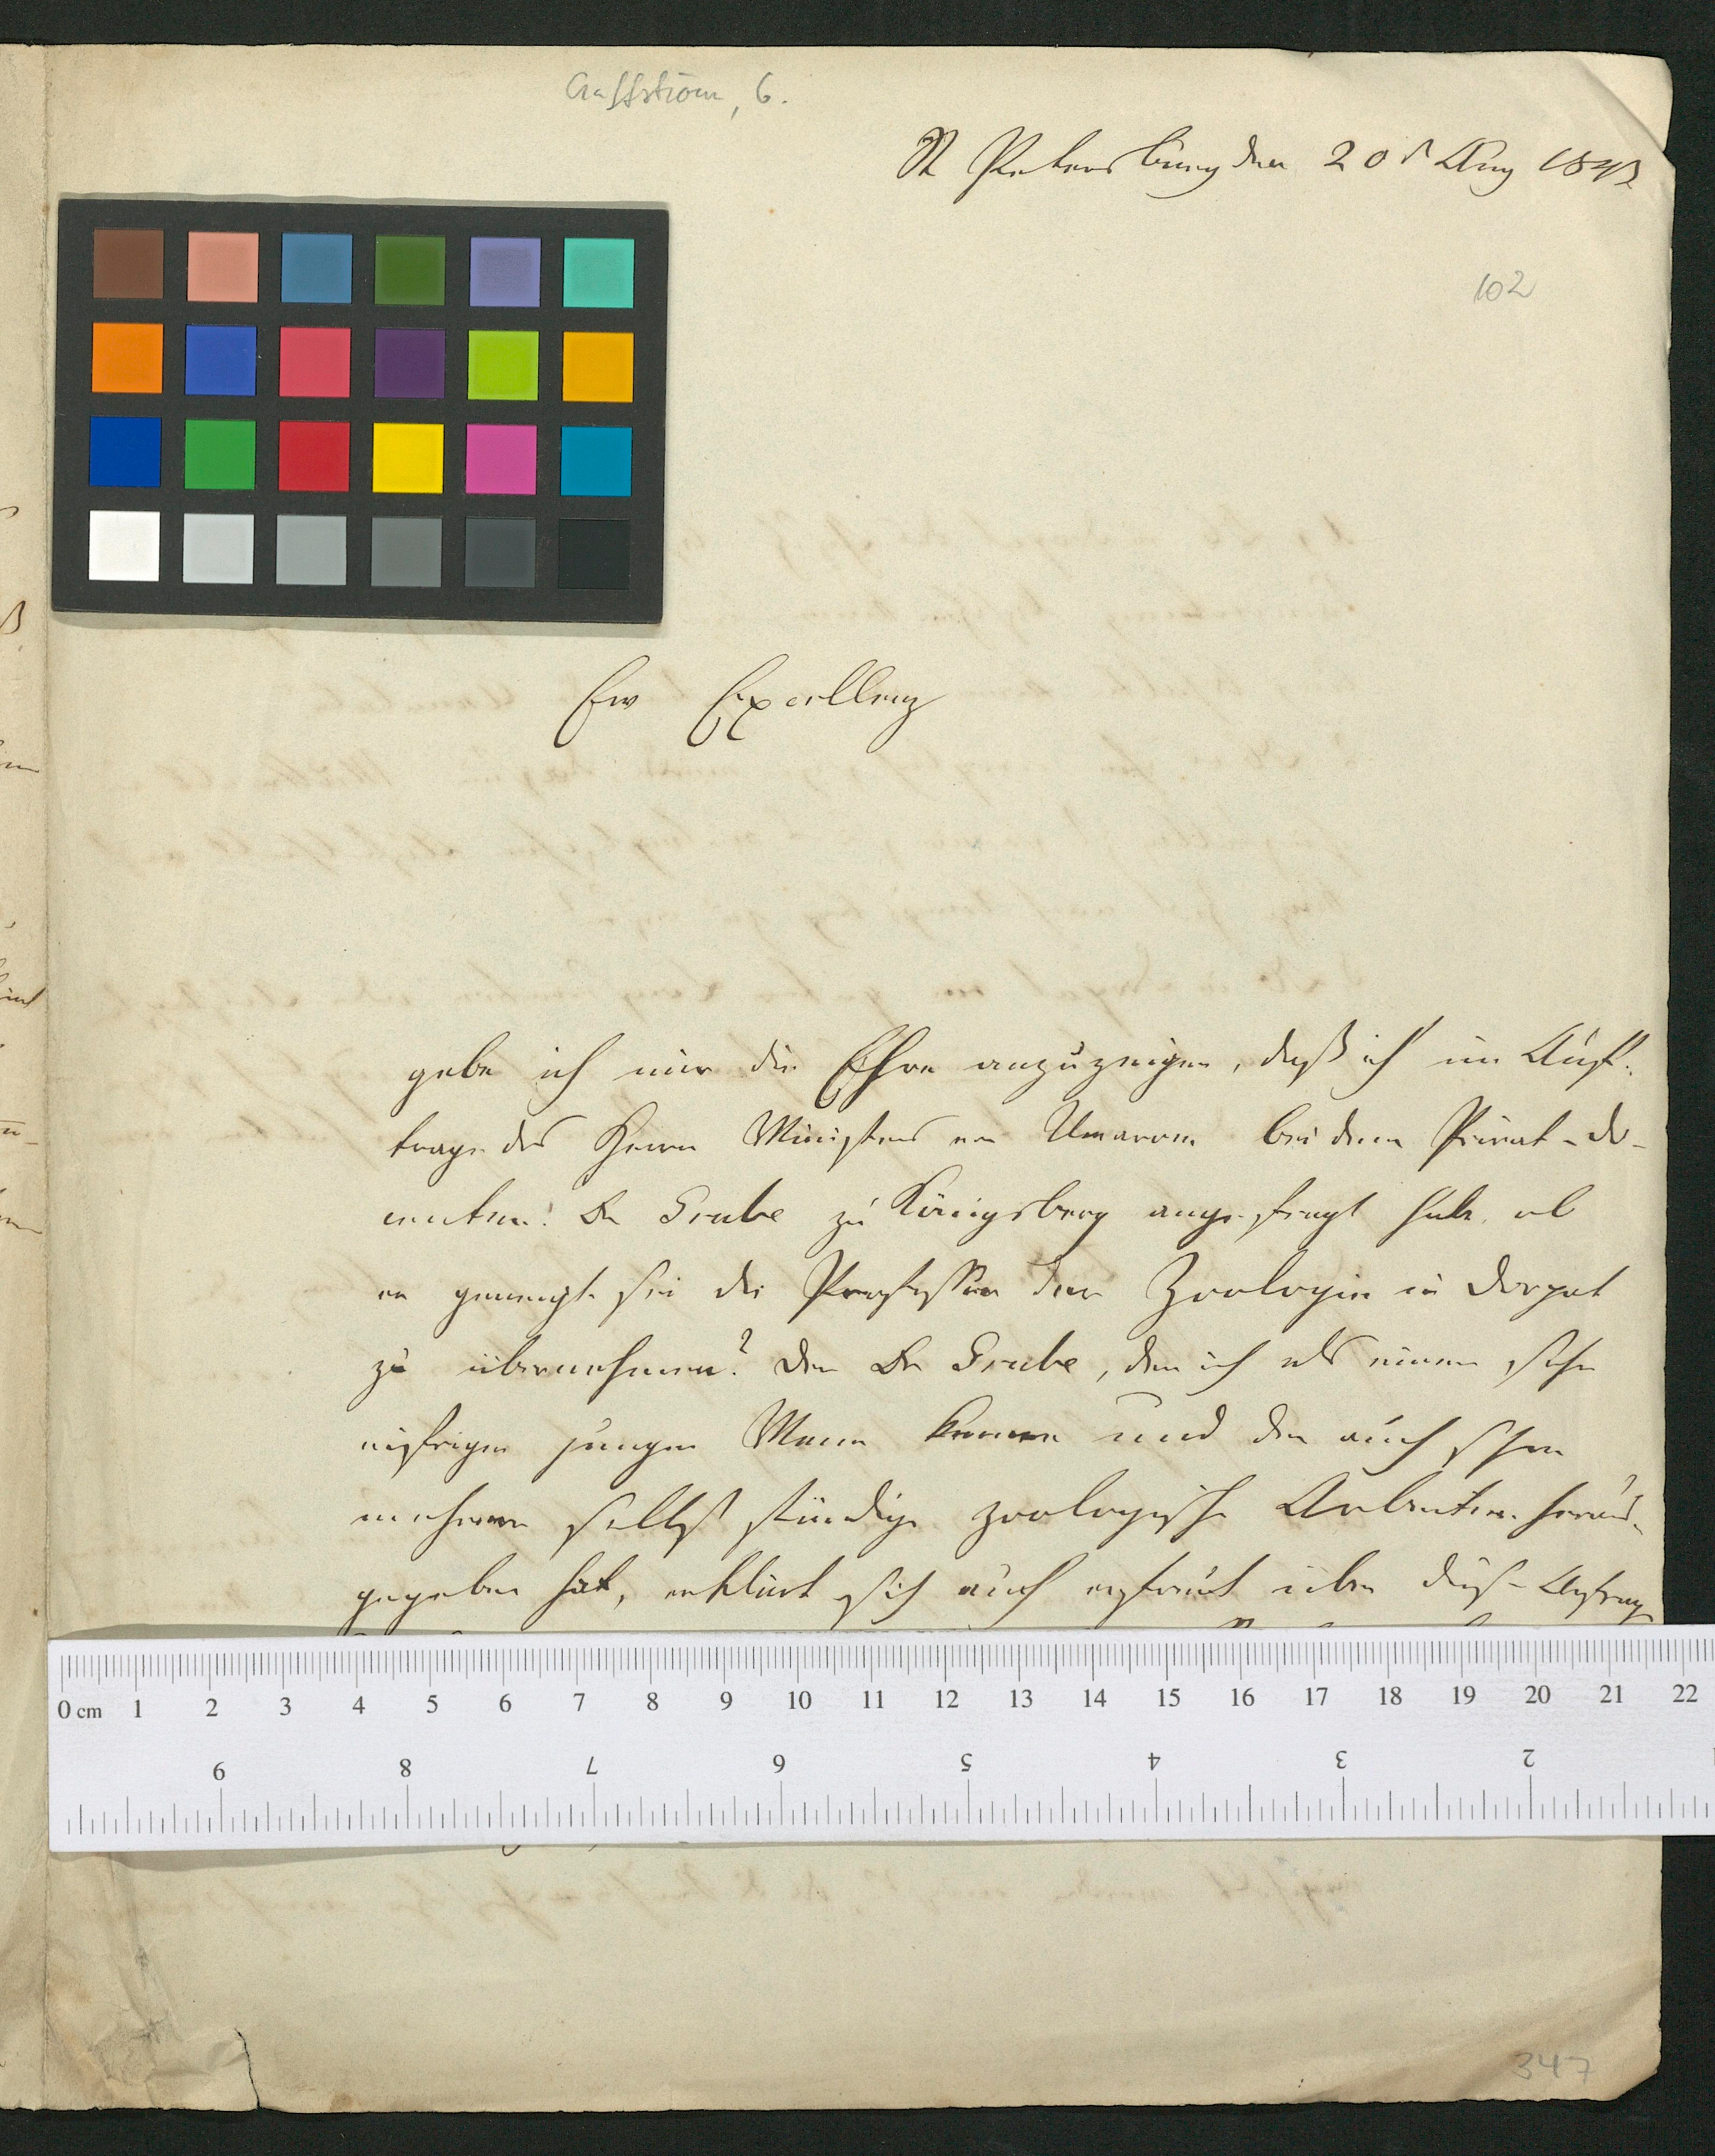 Craffström, 6.
St Petersburg den 20st Aug 1843
102
Ew Excellenz
gebe ich mir die Ehre anzuzeigen, daß ich im Auf-
trage des Herrn Ministers von Uwarow bei dem Privat-do-
centen Dr Grube zu Königsberg angefragt habe, ob
er geneigt sei die Professur der Zoologie in Dorpat
zu übernehmen? Der Dr Grube, den ich als einen sehr
eifrigen jungen Mann kenne und der auch schon
mehrere selbst ständige zoologische Arbeiten heraus-
gegeben hat, erklärt sich auch erfreut über diese Anfrage
0 cm 1 2 3 4 5 6 7 8 9 10 11 12 13 14 15 16 17 18 19 20 21 22
9 8 7 6 5 4 3 2
347